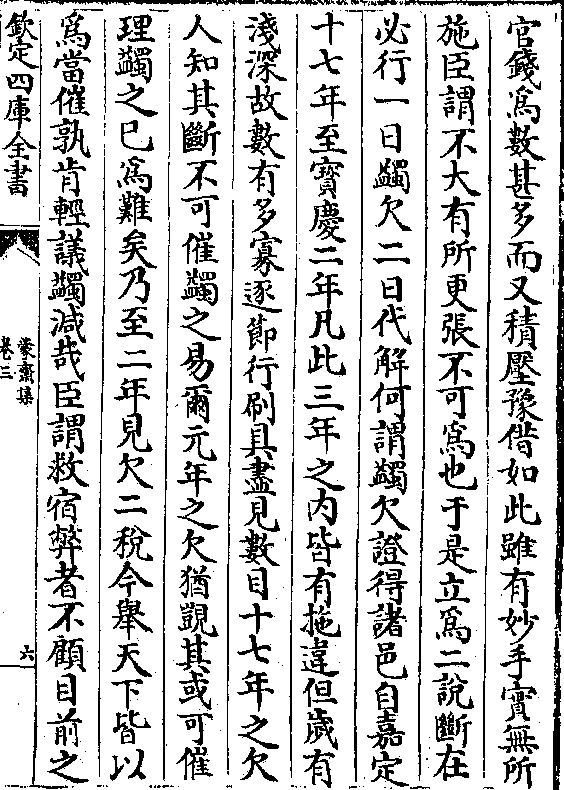 官錢爲數甚多而又積壓豫借如此雖有妙手實無所
施臣謂不大有所更張不可爲也于是立爲二說斷在
必行一曰蠲欠二曰代解何謂蠲欠證得諸邑自嘉定
十七年至寶慶二年凡此三年之内皆有拖違但歲有
淺深故數有多寡逐節行刷具盡見數目十七年之欠
人知其斷不可催蠲之易爾元年之欠猶覬其或可催
理蠲之已爲難矣乃至二年見欠二稅今舉天下皆以
爲當催孰肯輕議蠲減哉臣謂救宿弊者不顧目前之
欽定四庫全書
蒙齋集
卷三
六